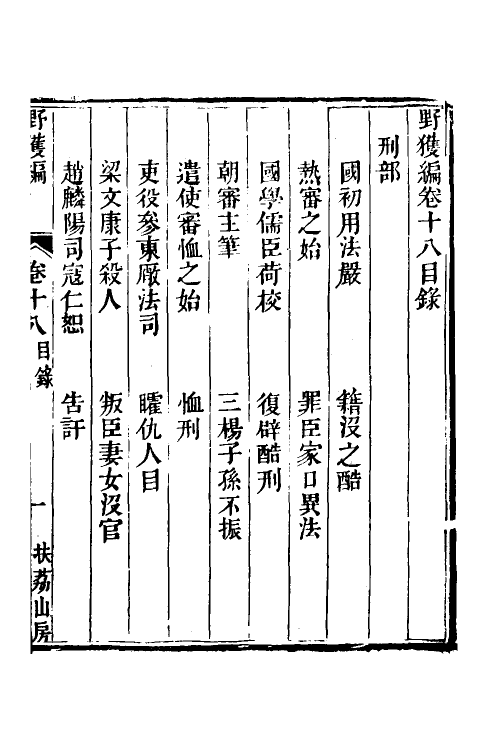 野獲編卷十八目錄
刑部
國初用法嚴　籍沒之酷
熱審之始　罪臣家口異法
國學儒臣荷校　復辟酷刑
朝審主筆　三楊子孫不振
遣使審恤之始　恤刑
吏役參東厰法司　矐仇人目
梁文康子殺人　叛臣妻女沒官
趙麟陽司寇仁恕　告訐
野獲編　卷十八目錄　一　扶荔山房